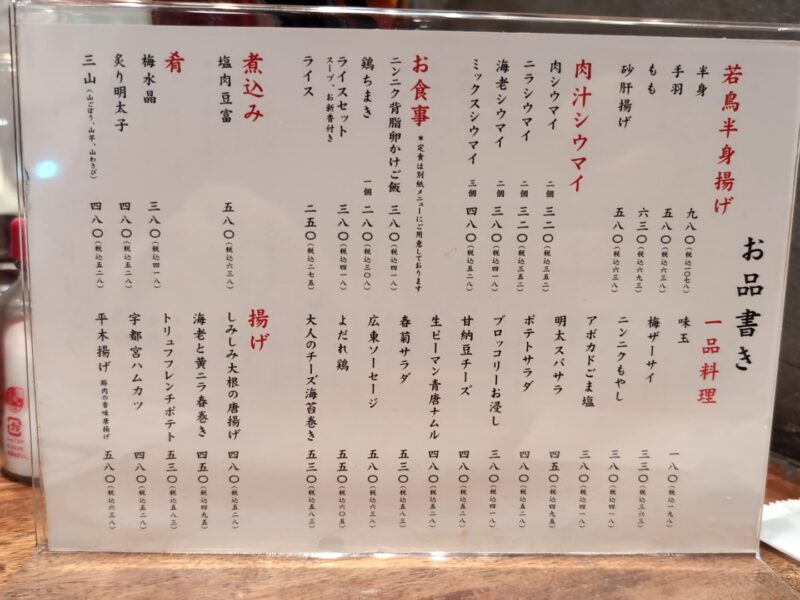 お品書き
若鳥半身揚げ
半身 九八〇（税込一〇七八）
手羽 五八〇（税込六三八）
もも 六三〇（税込六九三）
砂肝揚げ 五八〇（税込六三八）
肉汁シウマイ
肉シウマイ 二個 三二〇（税込三五二）
ニラシウマイ 二個 三二〇（税込三五二）
海老シウマイ 二個 三八〇（税込四一八）
ミックスシウマイ 三個 四八〇（税込五二八）
お食事 ＊定食は別紙メニューにご用意しております
ニンニク背脂卵かけご飯 三八〇（税込四一八）
鶏ちまき 一個 二八〇（税込三〇八）
ライスセット 三八〇（税込四一八）
スープ、お新香付き
ライス 二五〇（税込二七五）
煮込み
塩肉豆富 五八〇（税込六三八）
肴
梅水晶 三八〇（税込四一八）
炙り明太子 四八〇（税込五二八）
三山（山ごぼう、山芋、山わさび） 四八〇（税込五二八）
一品料理
味玉 一八〇（税込一九八）
梅ザーサイ 三三〇（税込三六三）
ニンニクもやし 三八〇（税込四一八）
アボカドごま塩 三八〇（税込四一八）
明太スパサラ 四五〇（税込四九五）
ポテトサラダ 四八〇（税込五二八）
ブロッコリーお浸し 三八〇（税込四一八）
甘納豆チーズ 四八〇（税込五二八）
生ピーマン青唐ナムル 四八〇（税込五二八）
春菊サラダ 五三〇（税込五八三）
広東ソーセージ 五八〇（税込六三八）
よだれ鶏 五五〇（税込六〇五）
大人のチーズ海苔巻き 五三〇（税込五八三）
揚げ
しみしみ大根の唐揚げ 四八〇（税込五二八）
海老と黄ニラ春巻き 四五〇（税込四九五）
トリュフフレンチポテト 五三〇（税込五八三）
宇都宮ハムカツ 四八〇（税込五二八）
平木揚げ 筋肉の香味唐揚げ 五八〇（税込六三八）